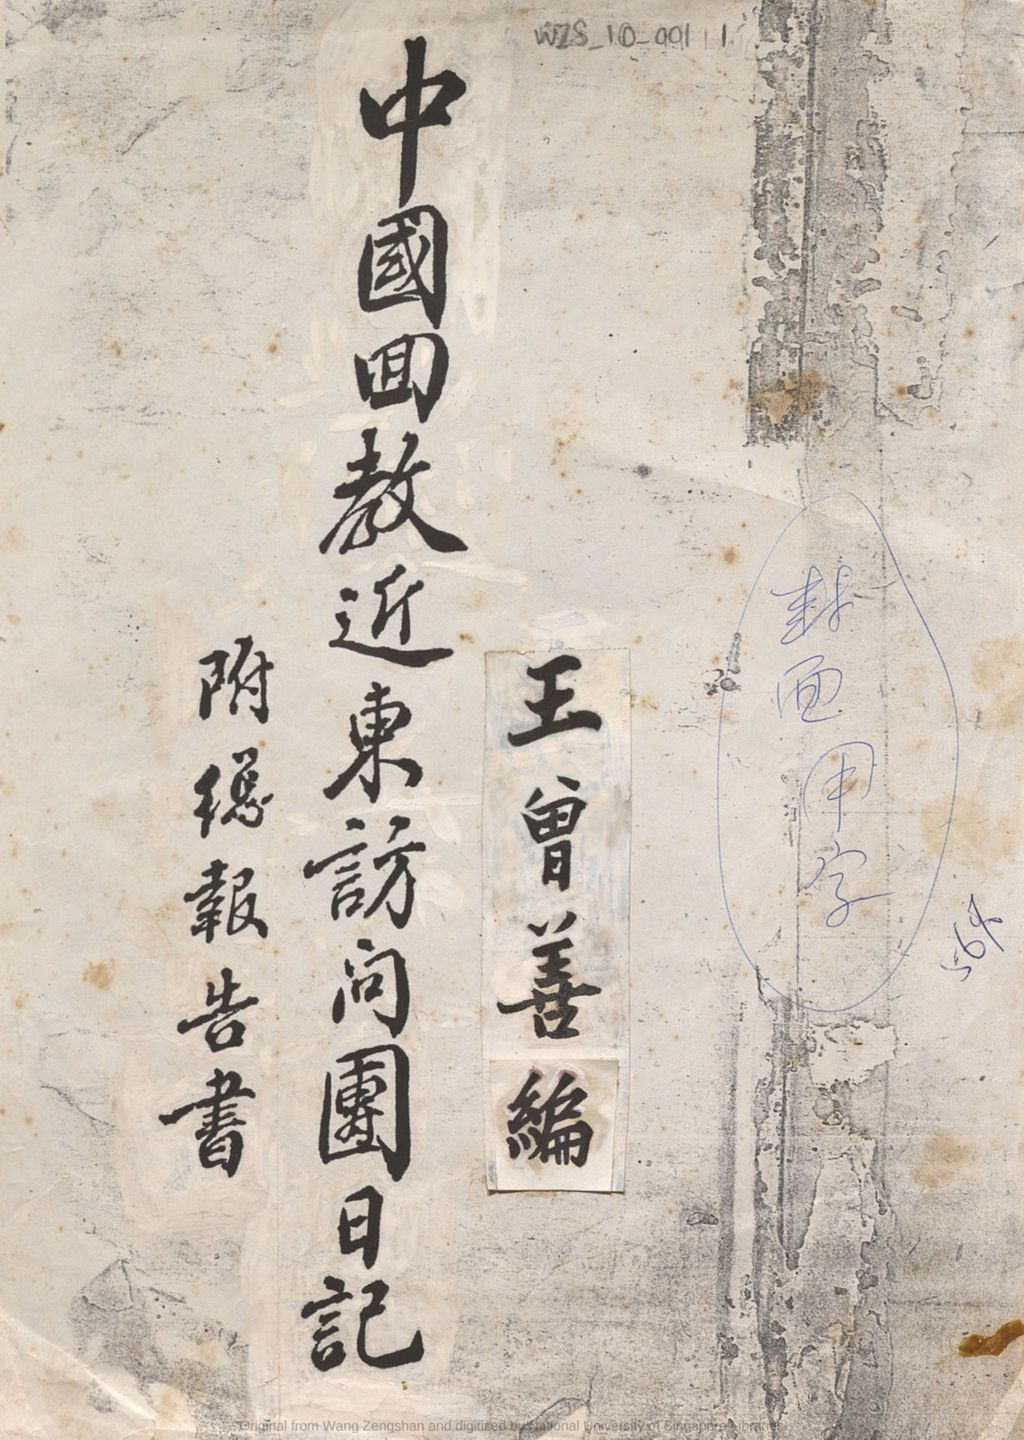 WZS_10_001 | 1
封面用字
564
王曾善編
中國回教近東訪問團日記
附總報告書
Original from Wang Zengshan and digitized by National University of Singapore Libraries